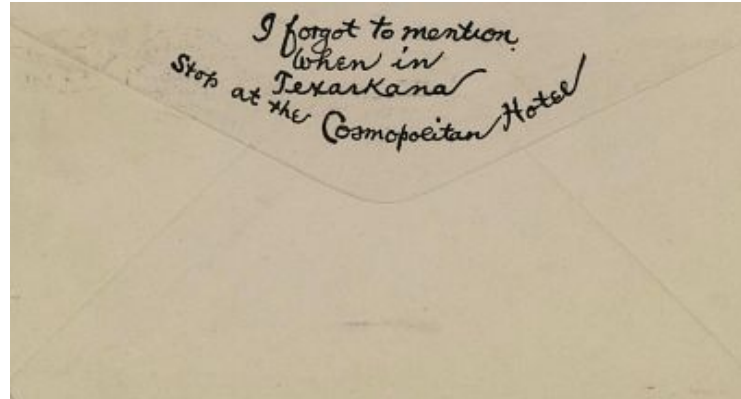 I forgot to mention
when in
Texarkana
Stop at the Cosmopolitan Hotel